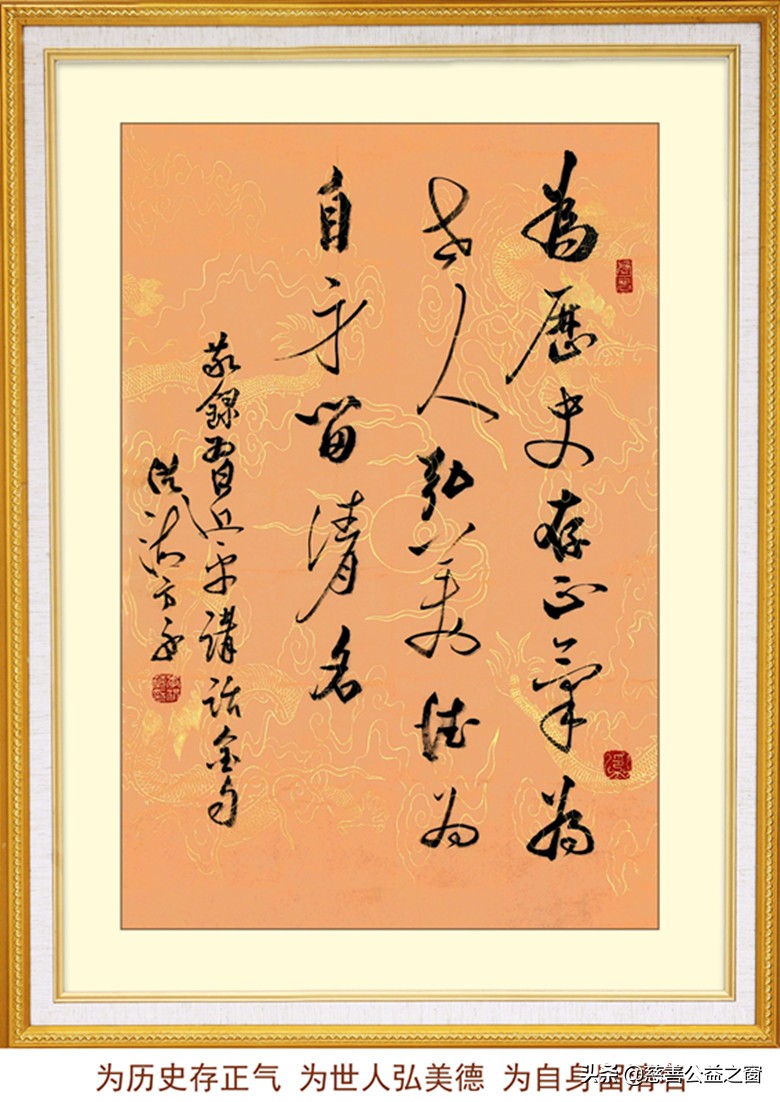 為歷史存正氣為
世人弘美德为
自身留清名
敬録習近平講話金句
洪湖方
为历史存正气 为世人弘美德 为自身留清名
头条 @慈善公益之窗